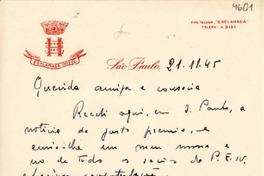 4601
END. TELEGR. "ESPLANADA"
TELEPH. 4-3181
ESPLANADA HOTEL
São Paulo, 21.11.45
Querida amiga e consocia
Recebi aqui, em S. Paulo, a
noticia do justo premio, e
envio-lhe em meu nome e
no de todos os socios do P.E.N.